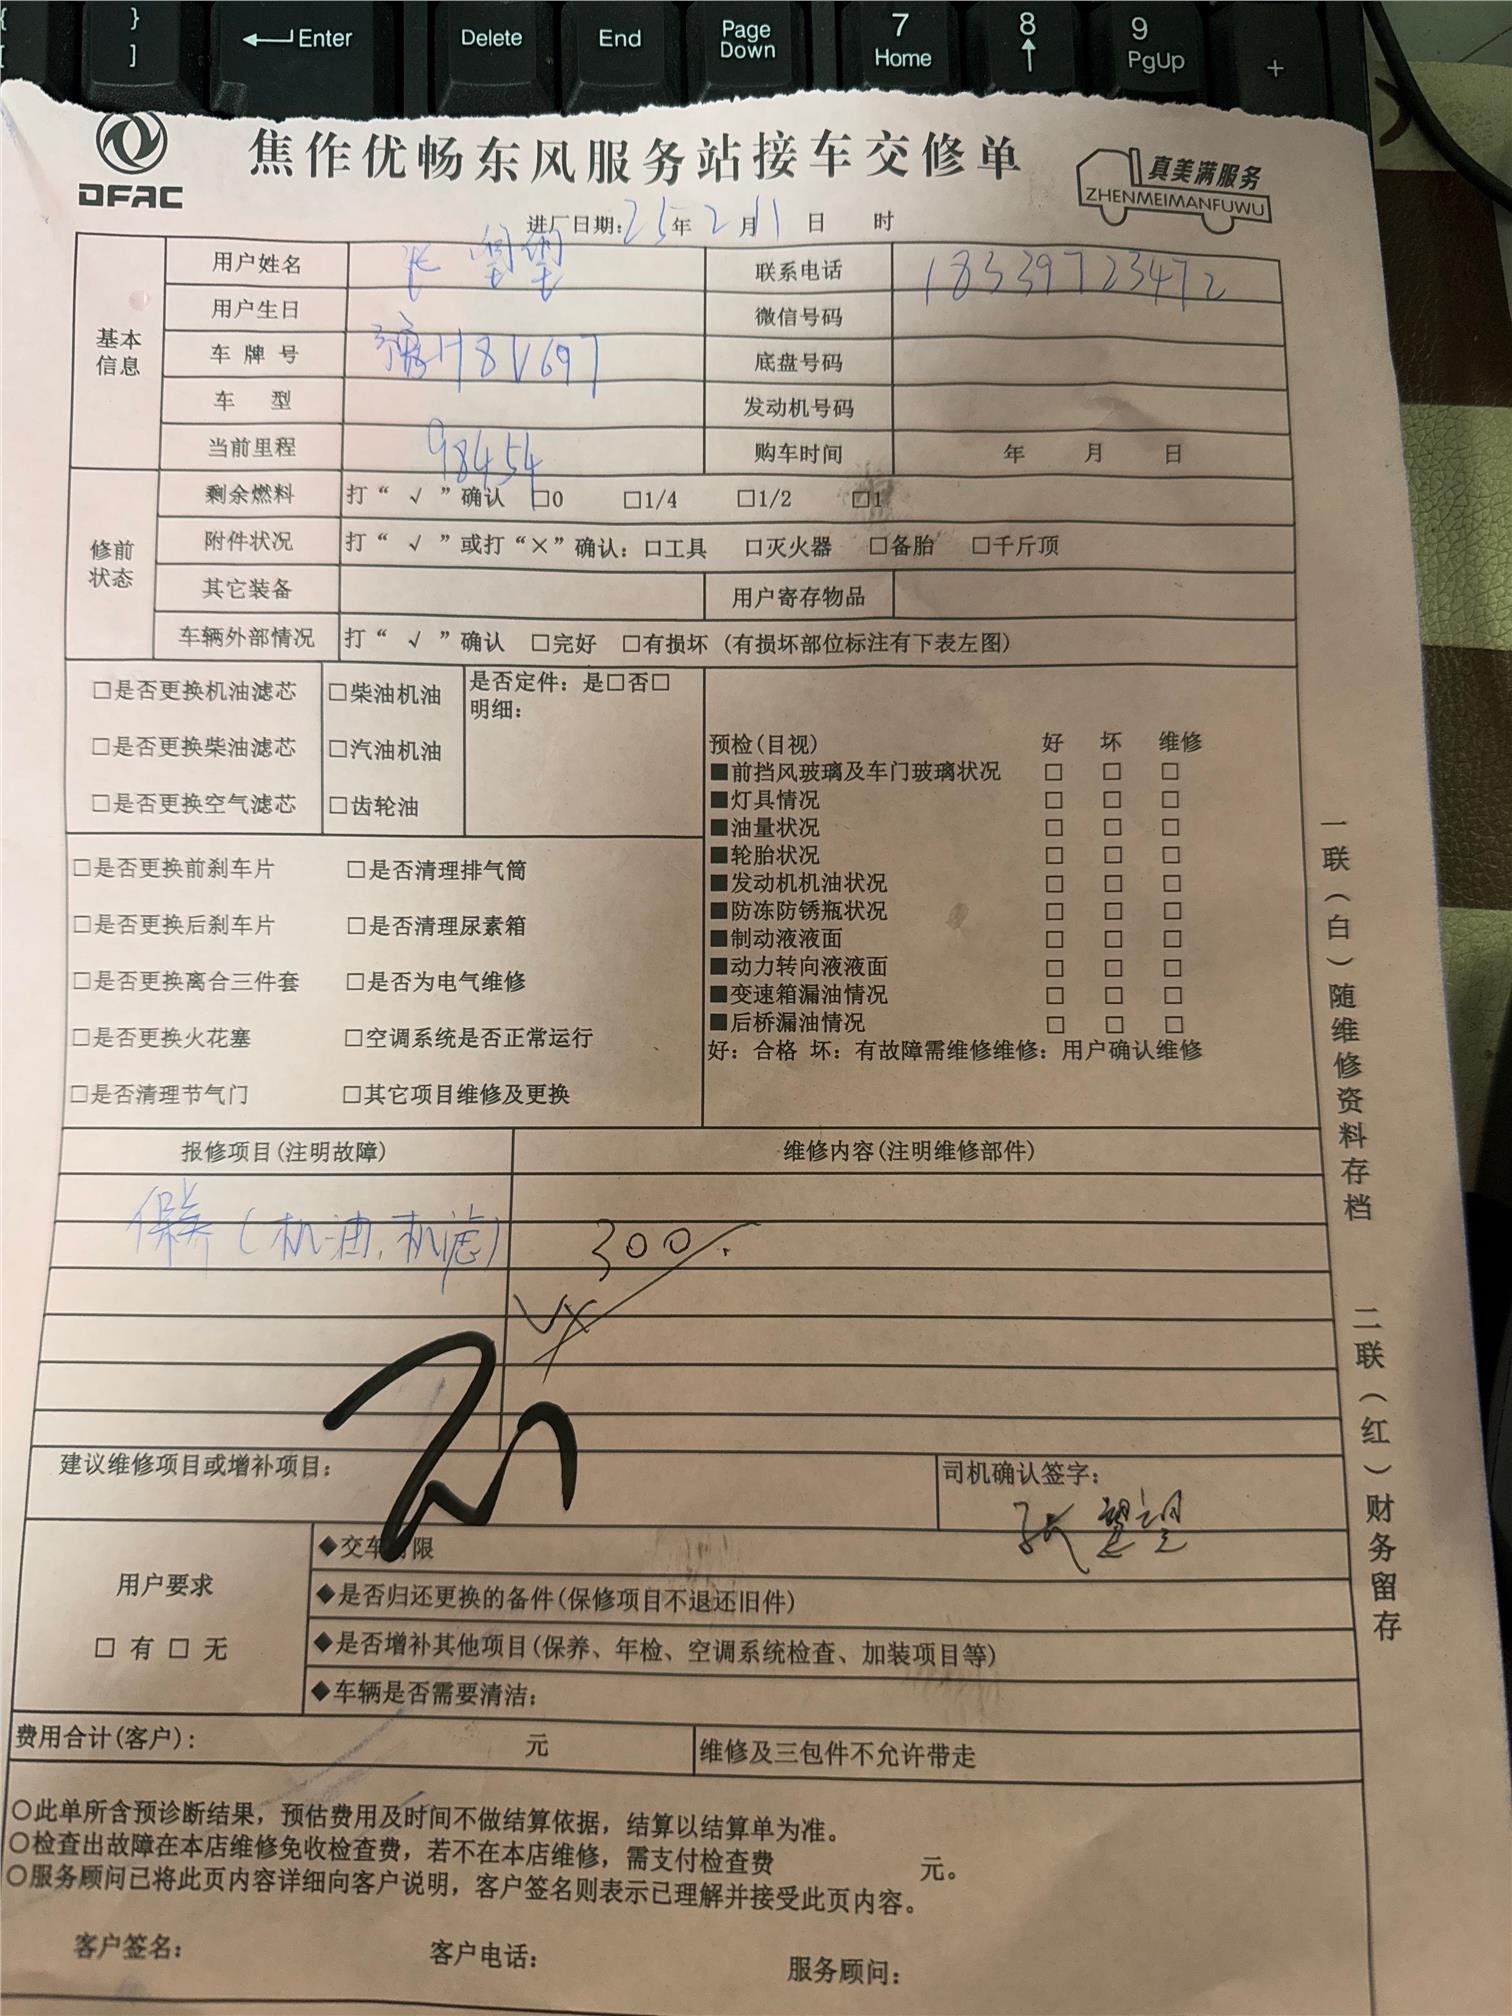 }
]
Enter
Delete
End
Page
Down
7
Home
8
9
PgUp
+
DFAC
焦作优畅东风服务站接车交修单
真美满服务
ZHENMEIMANFUWU
进厂日期: 25年 2月11日 时
基本
信息
用户姓名
联系电话 18339723472
用户生日
微信号码
车牌号 豫H8V697
底盘号码
车 型
发动机号码
当前里程 98454
购车时间 年 月 日
修前
状态
剩余燃料 打“ √ ”确认 □0 □1/4 □1/2 □1
附件状况 打“ √ ”或打“×”确认: □工具 □灭火器 □备胎 □千斤顶
其它装备
用户寄存物品
车辆外部情况 打“ √ ”确认 □完好 □有损坏 (有损坏部位标注有下表左图)
□是否更换机油滤芯 □柴油机油
□是否更换柴油滤芯 □汽油机油
□是否更换空气滤芯 □齿轮油
是否定件: 是□否□
明细:
□是否更换前刹车片 □是否清理排气筒
□是否更换后刹车片 □是否清理尿素箱
□是否更换离合三件套 □是否为电气维修
□是否更换火花塞 □空调系统是否正常运行
□是否清理节气门 □其它项目维修及更换
预检(目视) 好 坏 维修
■前挡风玻璃及车门玻璃状况 □ □ □
■灯具情况 □ □ □
■油量状况 □ □ □
■轮胎状况 □ □ □
■发动机机油状况 □ □ □
■防冻防锈瓶状况 □ □ □
■制动液液面 □ □ □
■动力转向液液面 □ □ □
■变速箱漏油情况 □ □ □
■后桥漏油情况 □ □ □
好: 合格 坏: 有故障需维修维修: 用户确认维修
报修项目(注明故障) 维修内容(注明维修部件)
保养(机油,机滤) 300.
建议维修项目或增补项目:
司机确认签字:
用户要求
□ 有 □ 无
◆交车时限
◆是否归还更换的备件(保修项目不退还旧件)
◆是否增补其他项目(保养、年检、空调系统检查、加装项目等)
◆车辆是否需要清洁:
费用合计(客户): 元 维修及三包件不允许带走
○此单所含预诊断结果, 预估费用及时间不做结算依据, 结算以结算单为准。
○检查出故障在本店维修免收检查费, 若不在本店维修, 需支付检查费 元。
○服务顾问已将此页内容详细向客户说明, 客户签名则表示已理解并接受此页内容。
客户签名: 客户电话: 服务顾问:
一联(白)随维修资料存档
二联(红)财务留存